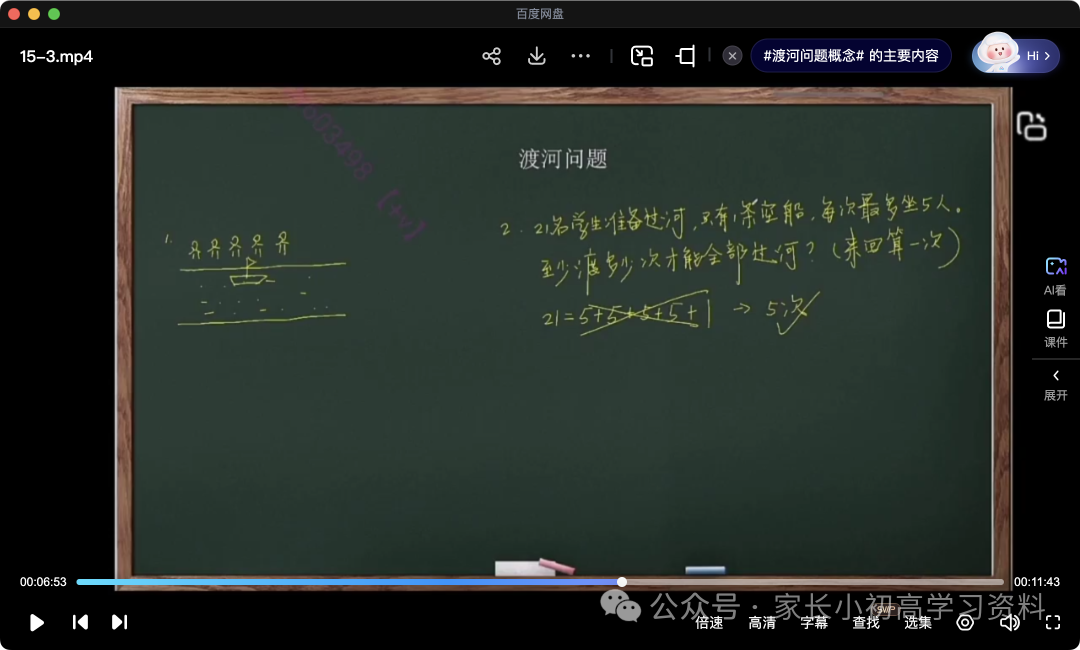 百度网盘
15-3.mp4
#渡河问题概念# 的主要内容
Hi >
渡河问题
1.
2. 21名学生准备过河,只有1条空船,每次最多坐5人。
至少渡多少次才能全部过河?(来回算一次)
21=5+5+5+5+1 → 5次
AI看
课件
展开
00:06:53
00:11:43
公众号 · 家长小初高学习资料
SVIP
倍速
高清
字幕
查找
选集